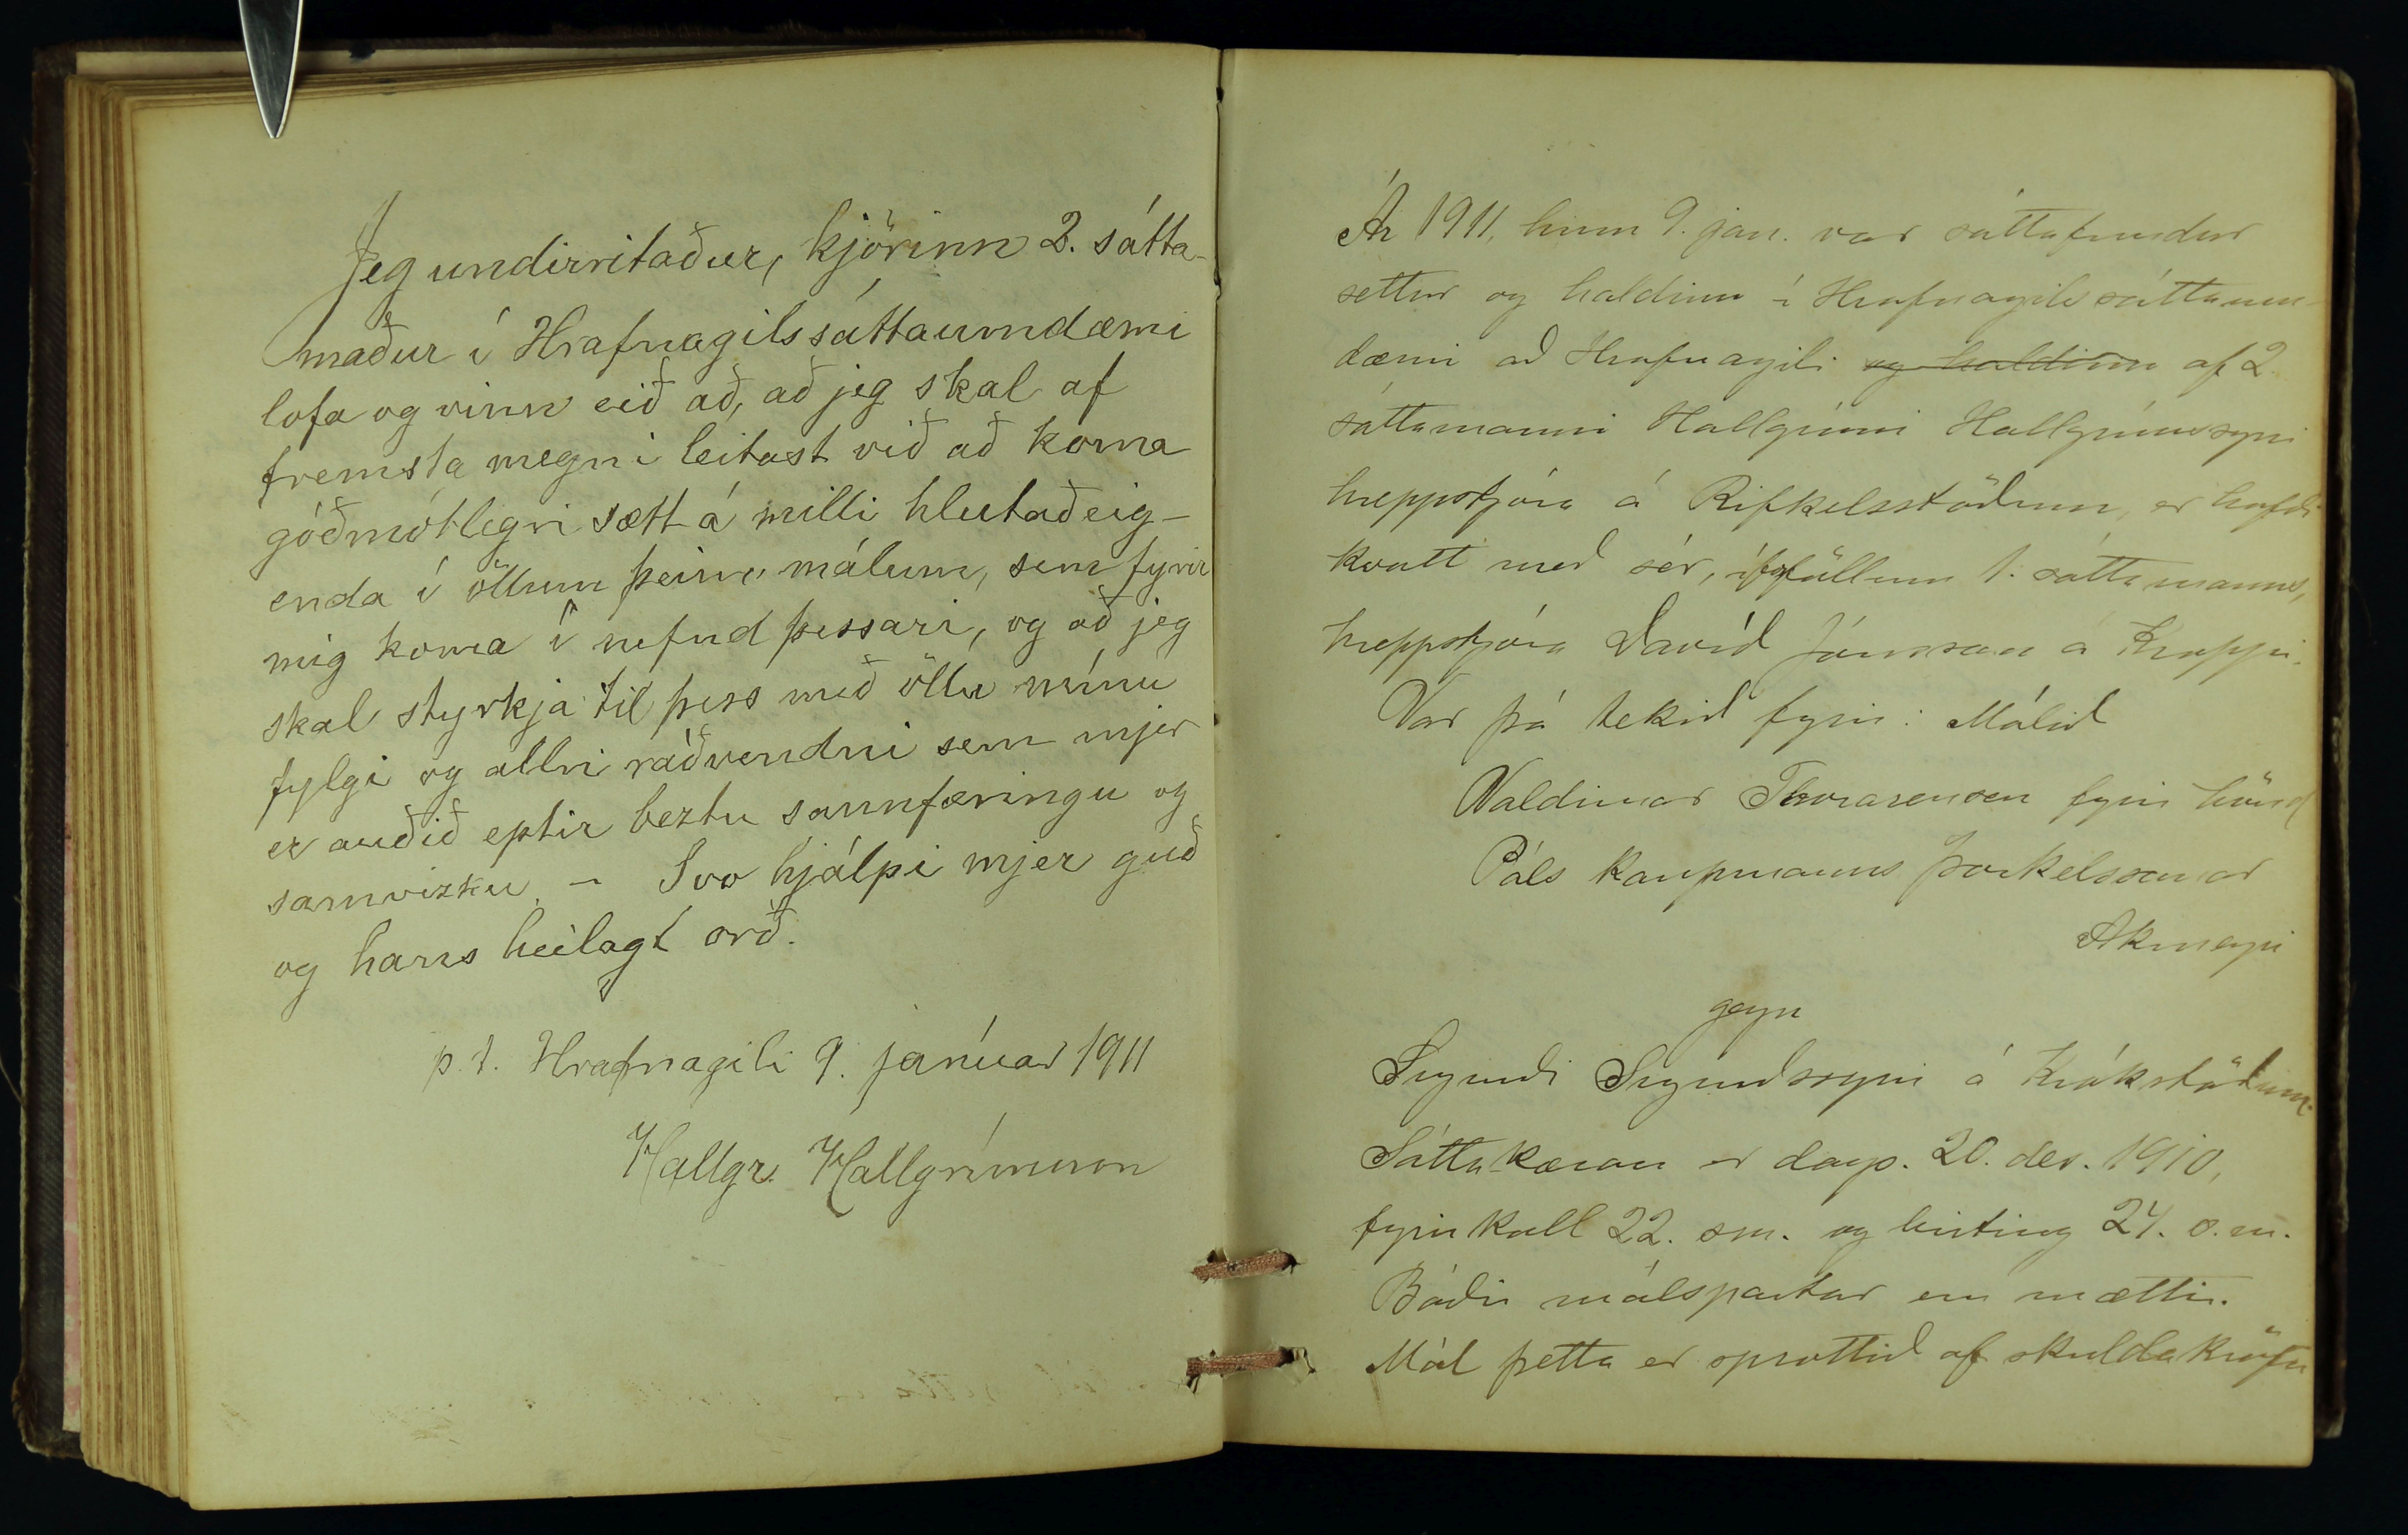 Jeg undirritaður, kjörinn 2. sátta-
maður í Hrafnagilssáttaumdæmi
lofa og vinn eið að, að jeg skal af
fremsta megni leitast við að koma
góðmótlegri sætt á milli hlutaðeig-
enda í öllum þeim málum, sem fyrir
mig koma í nefnd þessari, og að jeg
skal styrkja til þess með öllu mínu
fylgi og allri ráðvendni sem mjer
er auðið eptir beztu sannfæringu og
samvizku – Svo hjálpi mjer guð
og hans heilagt orð.
p.t. Hrafnagili 9. janúar 1911
Hallgr. Hallgrímsson
Ár 1911, hinn 9. jan. var sáttafundur
settur og haldinn í Hrafnagils sáttaum-
dæmi að Hrafnagili og haldinn af 2
sáttamanni Hallgrími Hallgrímssyni
hreppstjóra á Rifkelsstöðum, er hafði
kvatt með sér, í forföllum 1. sáttamanns,
hreppstjóra Davíð Jónsson á Kroppi.
Var þá tekið fyrir: Málið
Valdimar Thorarensen fyrir hönd
Páls kaupmanns Þorkelssonar
Akureyri
gegn
Sigurði Sigurðssyni á Krókstöðum.
Sáttakæran er dags. 20. des. 1910,
fyrirkall 22. s.m. og birting 24. s.m.
Báðir málspartar eru mættir.
Mál þetta er sprottið af skuldakröfu